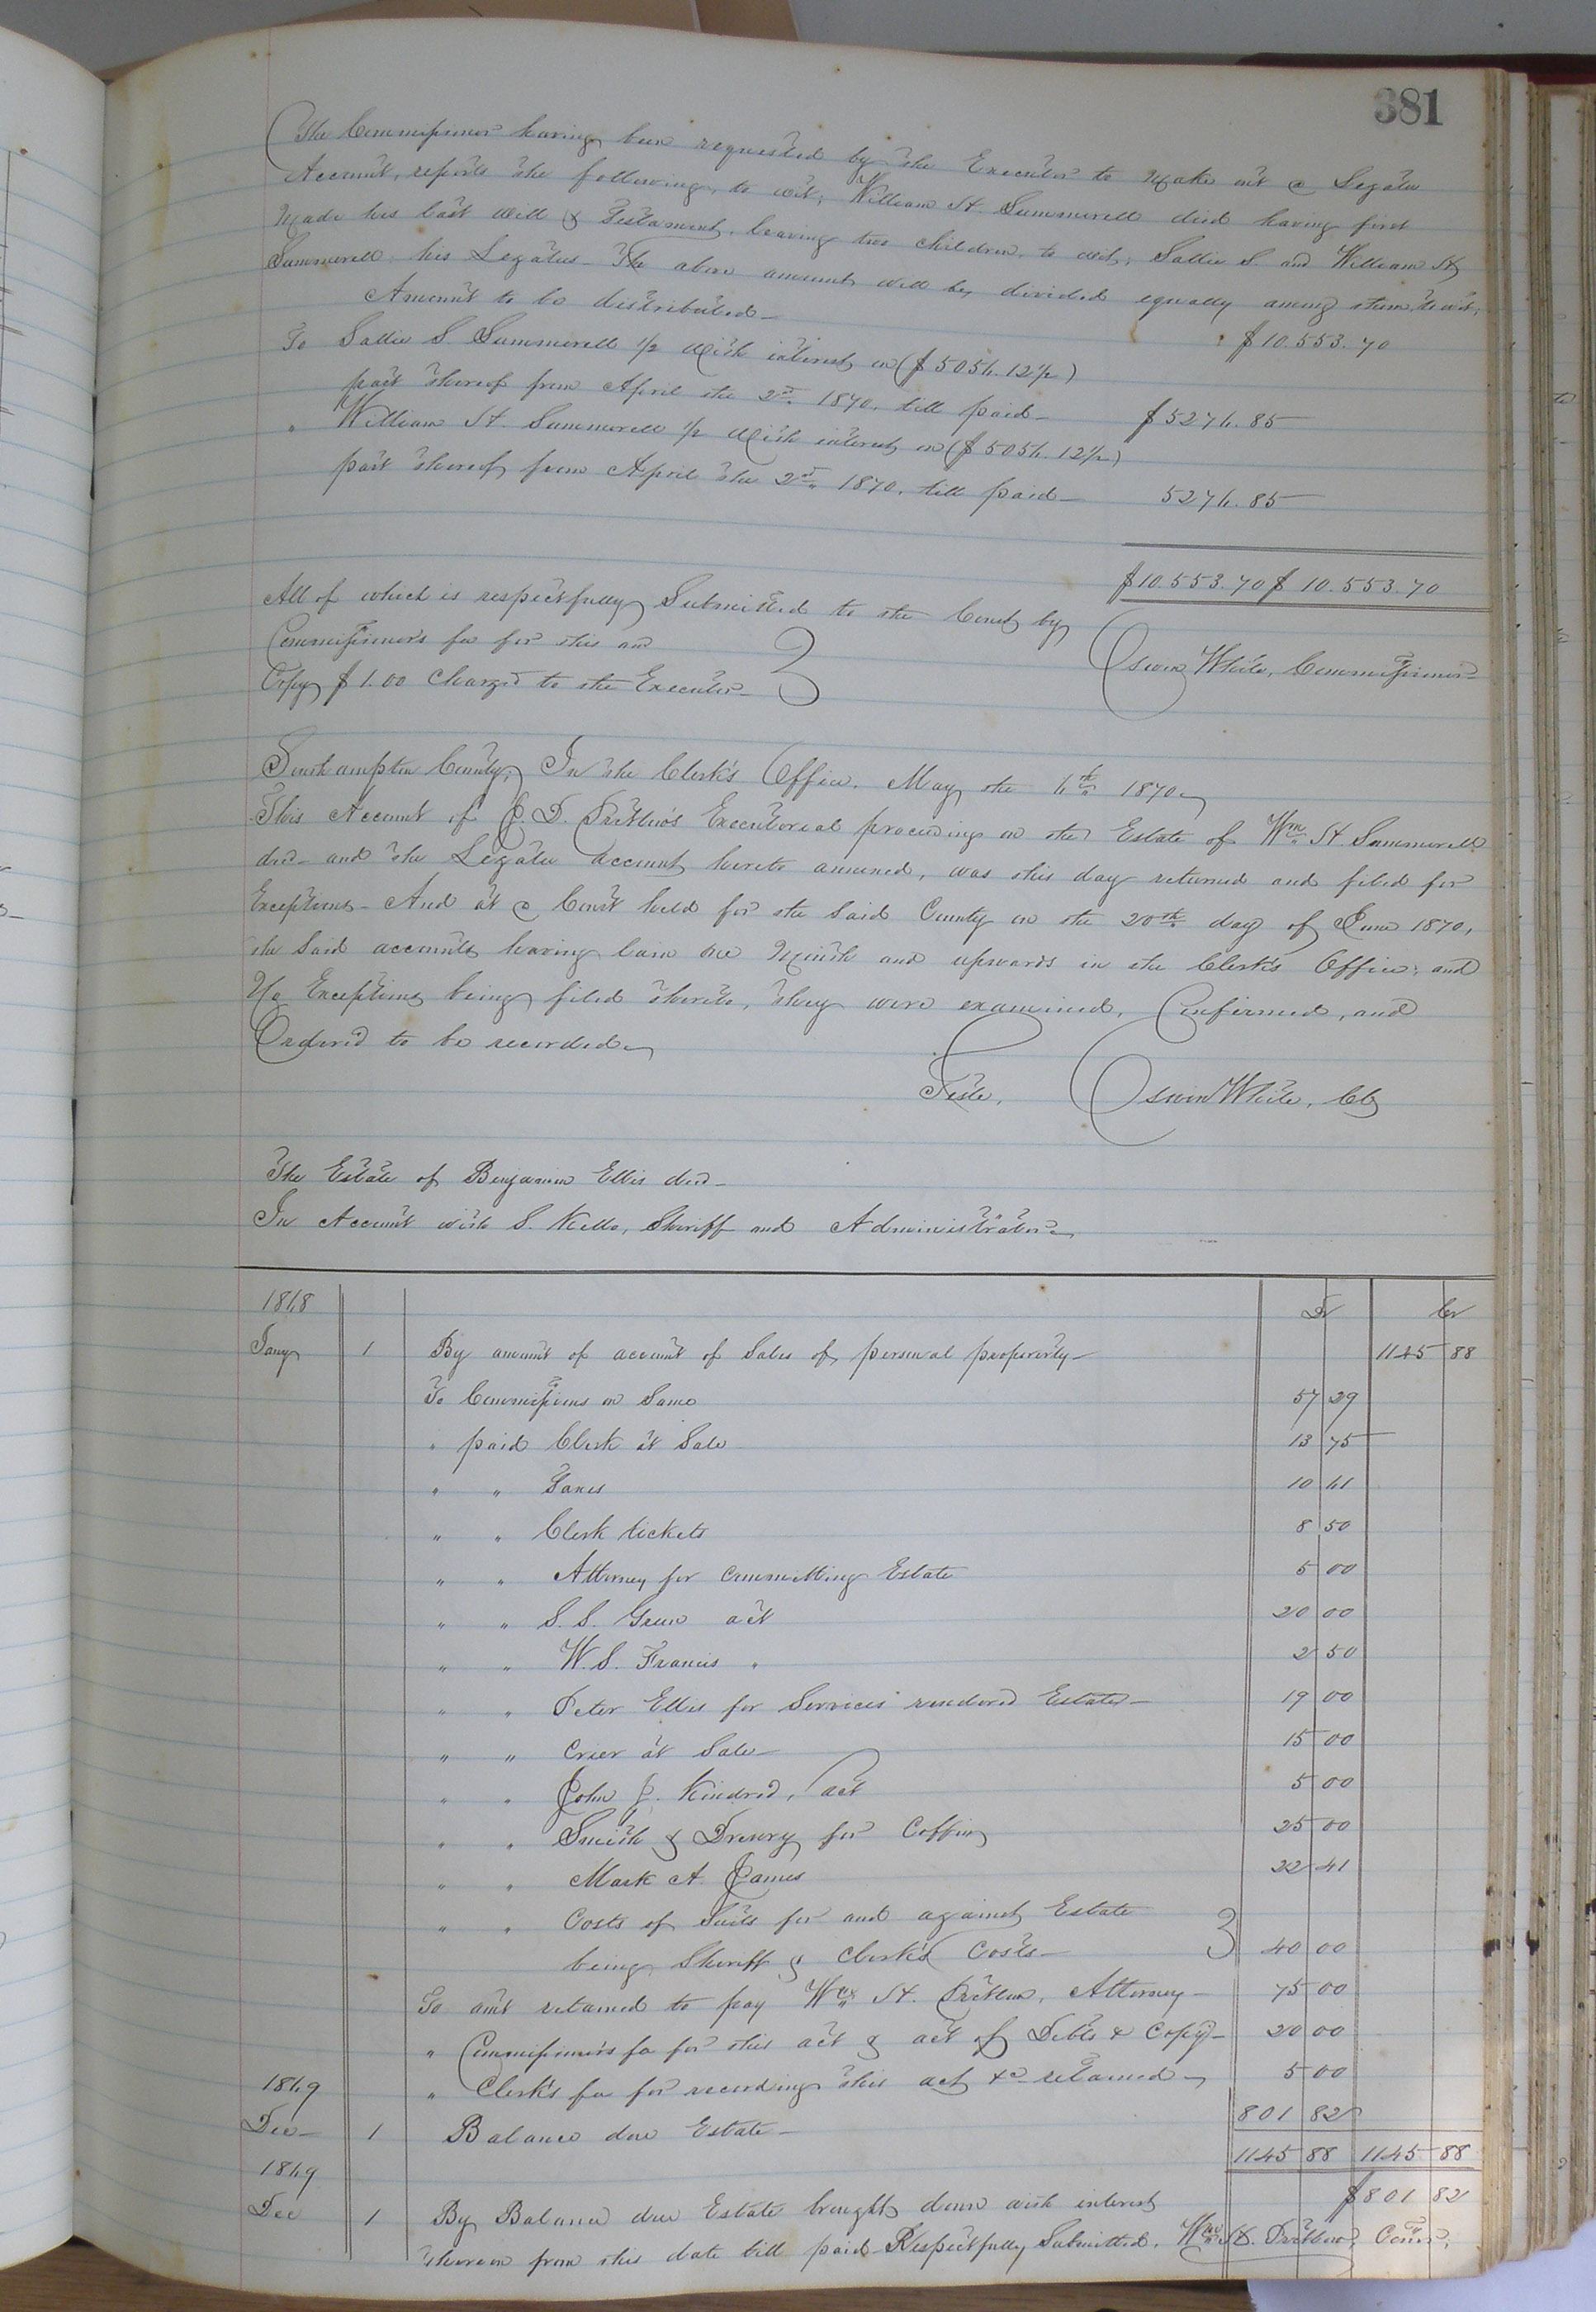 381
The Commissioner having been requested by the Executor to make out a Legatee
Account, reports the following, to wit; William H. Summerell died having first
made his last will & Testament, leaving two children, to wit; Sallie S. and William H
Summerell his Legatees. The above amount will be divided equally among them, to wit;
Amount to be distributed $10.553.70
To Sallie S. Summerell 1/2 with interest on ($5056.12 1/2)
part thereof from April the 2d 1870, till paid $5276.85
" William H. Summerell 1/2 with interest on ($5056.12 1/2)
part thereof from April the 2d 1870, till paid 5276.85
$10.553.70 $10.553.70
All of which is respectfully Submitted to the Court by
Commissioner's fee for this and
Copy $1.00 Charged to the Executor Oswin White, Commissioner
Southampton County; In the Clerk's Office. May the 6th 1870
This Account of J. D. Pretlow's Executorial proceedings on the Estate of Wm H. Summerell
decd and the Legatee account hereto annexed, was this day returned and filed for
Exceptions. And at a Court held for the said County on the 20th day of June 1870,
the said accounts having lain one Month and upwards in the Clerk's Office; and
No Exceptions being filed thereto, they were examined, Confirmed, and
Ordered to be recorded
Teste, Oswin White, Clk
The Estate of Benjamin Ellis decd
In Account with S. Kello, Sheriff and Administrator
1868 Dr Cr
Jany 1 By amount of account of Sales of personal property 1145 88
To Commissions on Same 57 29
" paid Clerk at Sale 13 75
" " Taxes 10 61
" " Clerk tickets 8 50
" " Attorney for committing Estate 5 00
" " S. S. Green act 20 00
" " W. S. Francis " 2 50
" " Peter Ellis for Services rendered Estate 19 00
" " Crier at Sale 15 00
" " John J. Kindred, act 5 00
" " Smith & Drewry for Coffin 25 00
" " Mark A. James 22 41
" " Costs of Suits for and against Estate
being Sheriff & Clerk's Costs 40 00
To amt retained to pay Wm H. Pretlow, Attorney 75 00
" Commissioner's fee for this act & act of Debts & Copy 20 00
1869 " Clerk's fee for recording this act &c retained 5 00
Dec 1 Balance due Estate 801 82
1869 1145 88 1145 88
Dec 1 By Balance due Estate brought down with interest $801 82
thereon from this date till paid Respectfully Submitted. Wm H. Pretlow, Comr.